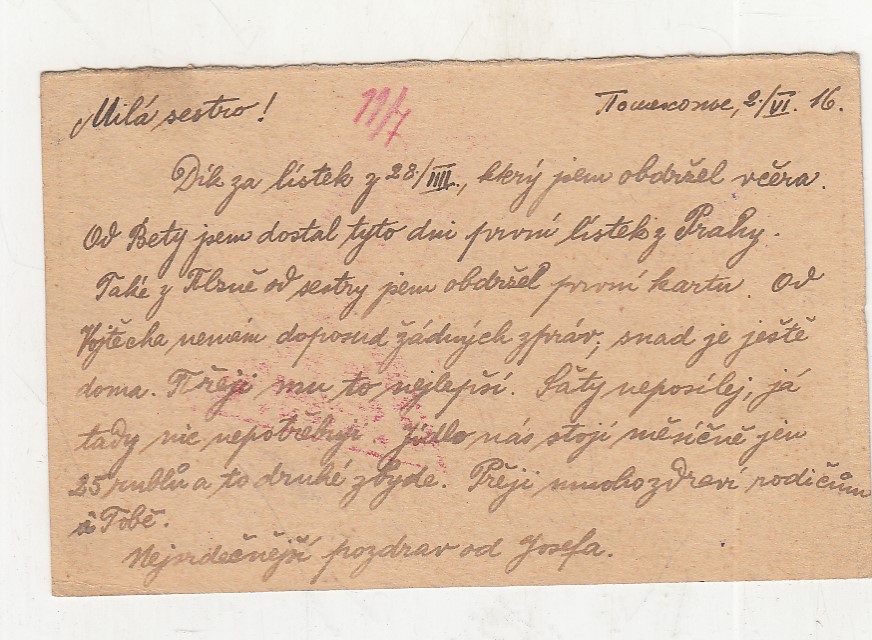 Milá sestro! 11/7 2./VI. 16.
Dík za lístek z 28./IIII., který jem obdržel včera.
Od Bety jsem dostal tyto dni první lístek z Prahy.
Také z Plzně od sestry jsem obdržel první kartu. Od
Vojtěcha nemám doposud žádných zpráv, snad je ještě
doma. Přeji mu to nejlepší. Šáty neposílej, já
tady nic nepotřebuji. Jídlo nás stojí měsíčně jen
25 rublů a to druhé zbyde. Přeji mnoho zdraví rodičům
i Tobě.
Nejsrdečnější pozdrav od Josefa.